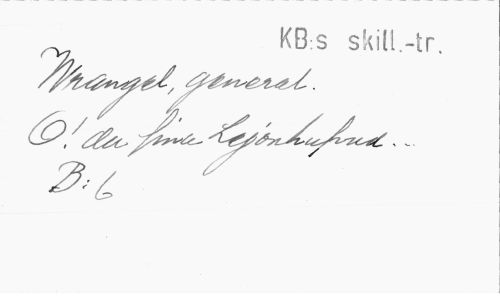 KB:s skill.-tr.
Wrangel, general.
O! du fina Lejonhufvud...
B:6